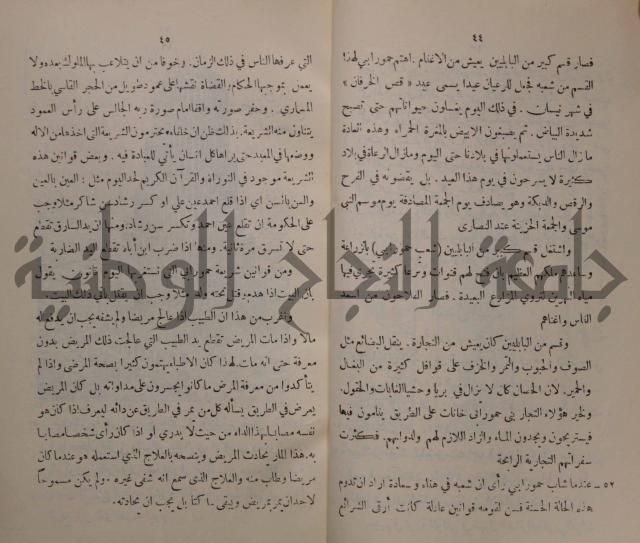 ٤٤
فصار قسم كبير من البابليين يعيش من الاغنام . اهتم حمورابي لهذا
القسم من شعبه فجعل للرعيان عيدا يسمى عيد « قص الخرفان »
في شهر نيسان . في ذلك اليوم يغسلون حيواناتهم حتى تصبح
شديدة البياض . ثم يصبغون الابيض بالمغرة الحمراء وهذه العادة
مازال الناس يستعملونها في بلادنا حتى اليوم ومازال الرعاة في بلاد
كثيرة لا يسرحون في يوم هذا العيد . بل يقضونه في الفرح
والرقص والدبكة وهو يصادف يوم الجمعة المصادفة يوم موسم النبي
موسى والجمعة الحزينة عند النصارى
واشتغل قسم كبير من البابليين (شعب حمورابي) بالزراعة
وساعدهم ملكهم العظيم بان فتح لهم قنوات وترعا كثيرة يجري فيها
مياه النهرين لتروي المزارع البعيدة . فصار الفلاحون من اسعد
الناس واغناهم
وقسم من البابليين كان يعيش من التجارة . ينقل البضائع مثل
الصوف والحبوب والتمر والخزف على قوافل كثيرة من البغال
والحمير . لان الحصان كان لا يزال في بريا وحشيا الغابات والحقول .
ولخير هؤلاء التجار بنى حمورابي خانات على الطريق ينامون فيها
فيستريحون ويجدون الماء والزاد اللازم لهم ولدوابهم . فكثرت
سفراتهم التجارية الرابحة
٥٢ - عندما شاب حمورابي رأى ان شعبه في هناء وسعادة اراد ان تدوم
هذه الحالة الحسنة فسن لقومه قوانين عادلة كانت أرقى الشرائع
٤٥
التي عرفها الناس في ذلك الزمان . وخوفا من ان يتلاعب بها الملوك بعده ولا
يعمل بموجبها الحكام والقضاة نقشها على عمود طويل من الحجر القاسي بالخط
المسماري . وحفر صورته واقفا امام صورة ربه الجالس على رأس العمود
يتناول منه الشريعة . بذلك ظن ان خلفاءه يحترمون الشريعة التي اخذها من الاله
ووضعها في المعبد حتى يراها كل انسان يأتي للعبادة فيه . وبعض قوانين هذه
الشريعة موجود في التوراة والقرآن الكريم لحد اليوم مثل : العين بالعين
والسن بالسن اي اذا قلع احمد عين علي او كسر رشاد سن شاكر مثلا وجب
على الحكومة ان تقلع عين احمد وتكسر سن رشاد . ومنها ان يد السارق تقطع
حتى لا تسرق مرة ثانية . ومنها اذا ضرب ابن أباه تقطع اليد الضاربة
ومن قوانين شريعة حمورابي التي نستغربها اليوم قانون يقول
بان البيت اذا هدم وقتل تحته ولد مثلا وجب ان يقتل باني ذلك البيت .
واغرب من هذا ان الطبيب اذا عالج مريضا ولم يشفه يجب ان يدفع له
مالا واذا مات المريض تقطع يد الطبيب التي عالجت ذلك المريض بدون
معرفة حتى انه مات . لهذا كان الاطباء يهتمون كثيرا بصحة المرضى واذا لم
يتأكدوا من معرفة المرض ما كانوا يجسرون على مداواته بل كان المريض
يعرض في الطريق يسأله كل من يمر في الطريق عن دائه ليعرف اذا كان هو
نفسه مصابا بهذا الداء من حيث لا يدري او اذا كان رأى شخصا مصابا
به . هذا المار يحادث المريض وينصحه بالعلاج الذي استعمله هو عندما كان
مريضا وطاب منه والعلاج الذي سمع انه شفى غيره . ولم يكن مسموحا
لاحد ان يمر بمريض ويبقى ساكتا بل يجب ان يحادثه .
جامعة النجاح الوطنية